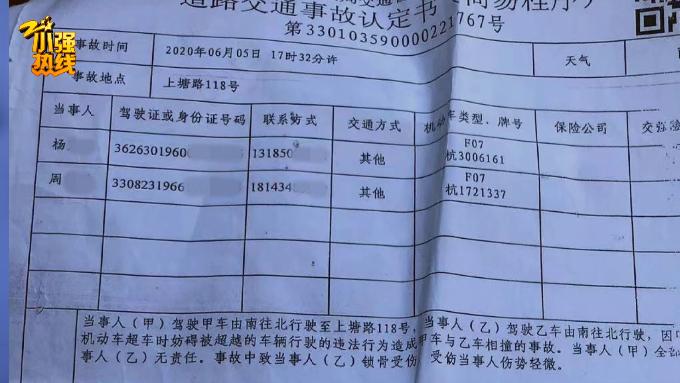 小强热线
道路交通事故认定书
简易程序)
第3301035900000221767号
事故时间 2020年06月05日 17时32分许 天气
事故地点 上塘路118号
当事人 驾驶证或身份证号码 联系方式 交通方式 机动车类型、牌号 保险公司
杨 3626301960 131850 其他 F07 杭3006161
周 3308231966 181434 其他 F07 杭1721337
当事人(甲)驾驶甲车由南往北行驶至上塘路118号,当事人(乙)驾驶乙车由南往北行驶,因
机动车超车时妨碍被超越的车辆行驶的违法行为造成甲车与乙车相撞的事故。当事人(甲)全
事人(乙)无责任。事故中致当事人(乙)锁骨受伤,受伤当事人伤势轻微。